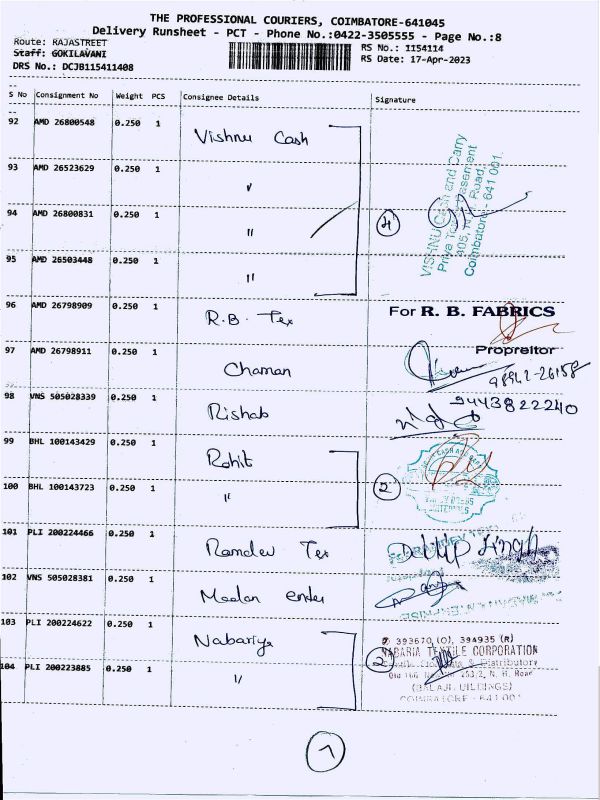 THE PROFESSIONAL COURIERS, COIMBATORE-641045
Delivery Runsheet - PCT - Phone No.:0422-3505555 - Page No.:8
Route: RAJASTREET
RS No.: 1154114
Staff: GOKILAVANI
RS Date: 17-Apr-2023
DRS No.: DCJB115411408
S No Consignment No Weight PCS Consignee Details Signature
92 AMD 26800548 0.250 1 Vishnu Cash
93 AMD 26523629 0.250 1 "
94 AMD 26800831 0.250 1 " 4
95 AMD 26503448 0.250 1 "
VISHNU Cash and Carry
Coimbatore - 641 001.
96 AMD 26798909 0.250 1 R.B. Tex For R. B. FABRICS
Propreitor
97 AMD 26798911 0.250 1 Chaman
98942-26158
98 VNS 505028339 0.250 1 Rishab 9443822240
99 BHL 100143429 0.250 1 Rohit
100 BHL 100143723 0.250 1 " 2
101 PLI 200224466 0.250 1 Ramdev Tex Dilip Singh
102 VNS 505028381 0.250 1 Madan enter
103 PLI 200224622 0.250 1 Nabariya
104 PLI 200223885 0.250 1 " 2
393670 (O), 394935 (R)
NABARIA TEXTILE CORPORATION
& Distributory
253/2, N. H. Road
(BALAJI BUILDINGS)
COIMBATORE - 641 001
7